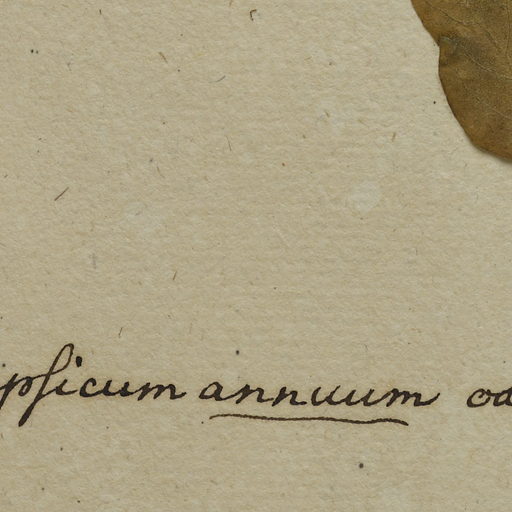 pſicum annuum od